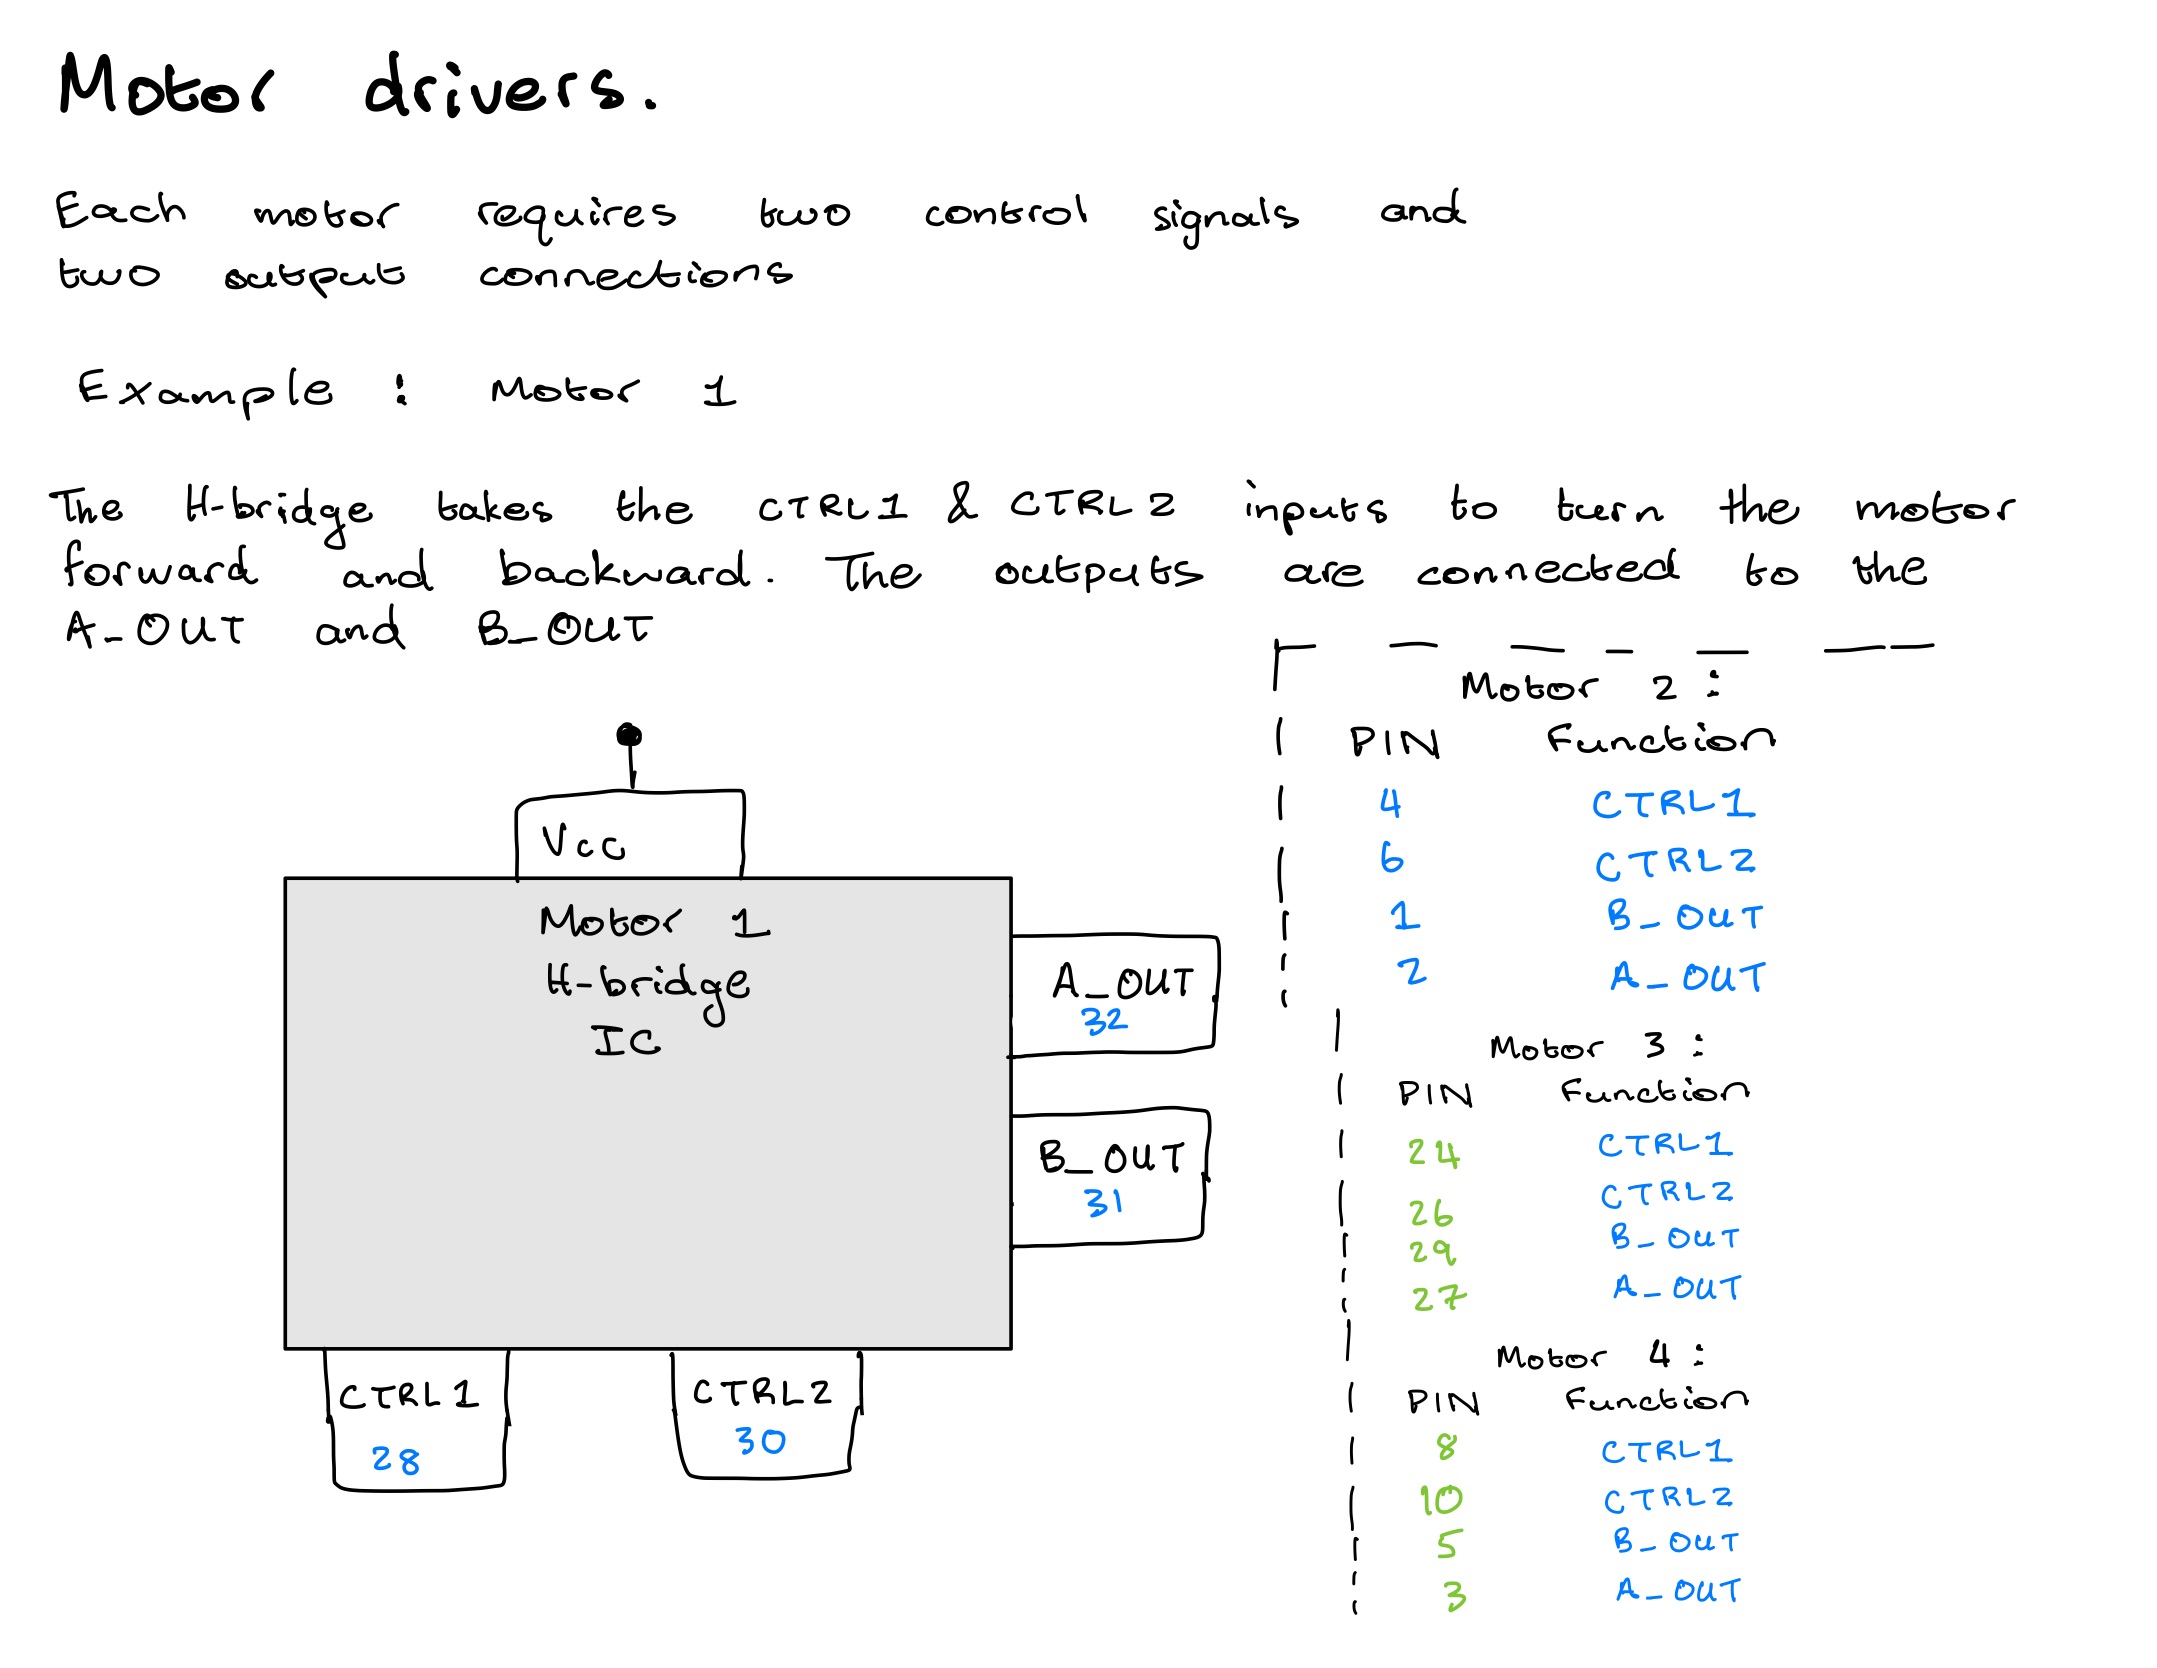 Motor drivers.
Each motor requires two control signals and
two output connections
Example : Motor 1
The H-bridge takes the CTRL1 & CTRL2 inputs to turn the motor
forward and backward. The outputs are connected to the
A_OUT and B_OUT
Vcc
Motor 1
H-bridge
IC
A_OUT
32
B_OUT
31
CTRL1
28
CTRL2
30
Motor 2 :
PIN Function
4 CTRL1
6 CTRL2
1 B_OUT
2 A_OUT
Motor 3 :
PIN Function
24 CTRL1
26 CTRL2
29 B_OUT
27 A_OUT
Motor 4 :
PIN Function
8 CTRL1
10 CTRL2
5 B_OUT
3 A_OUT